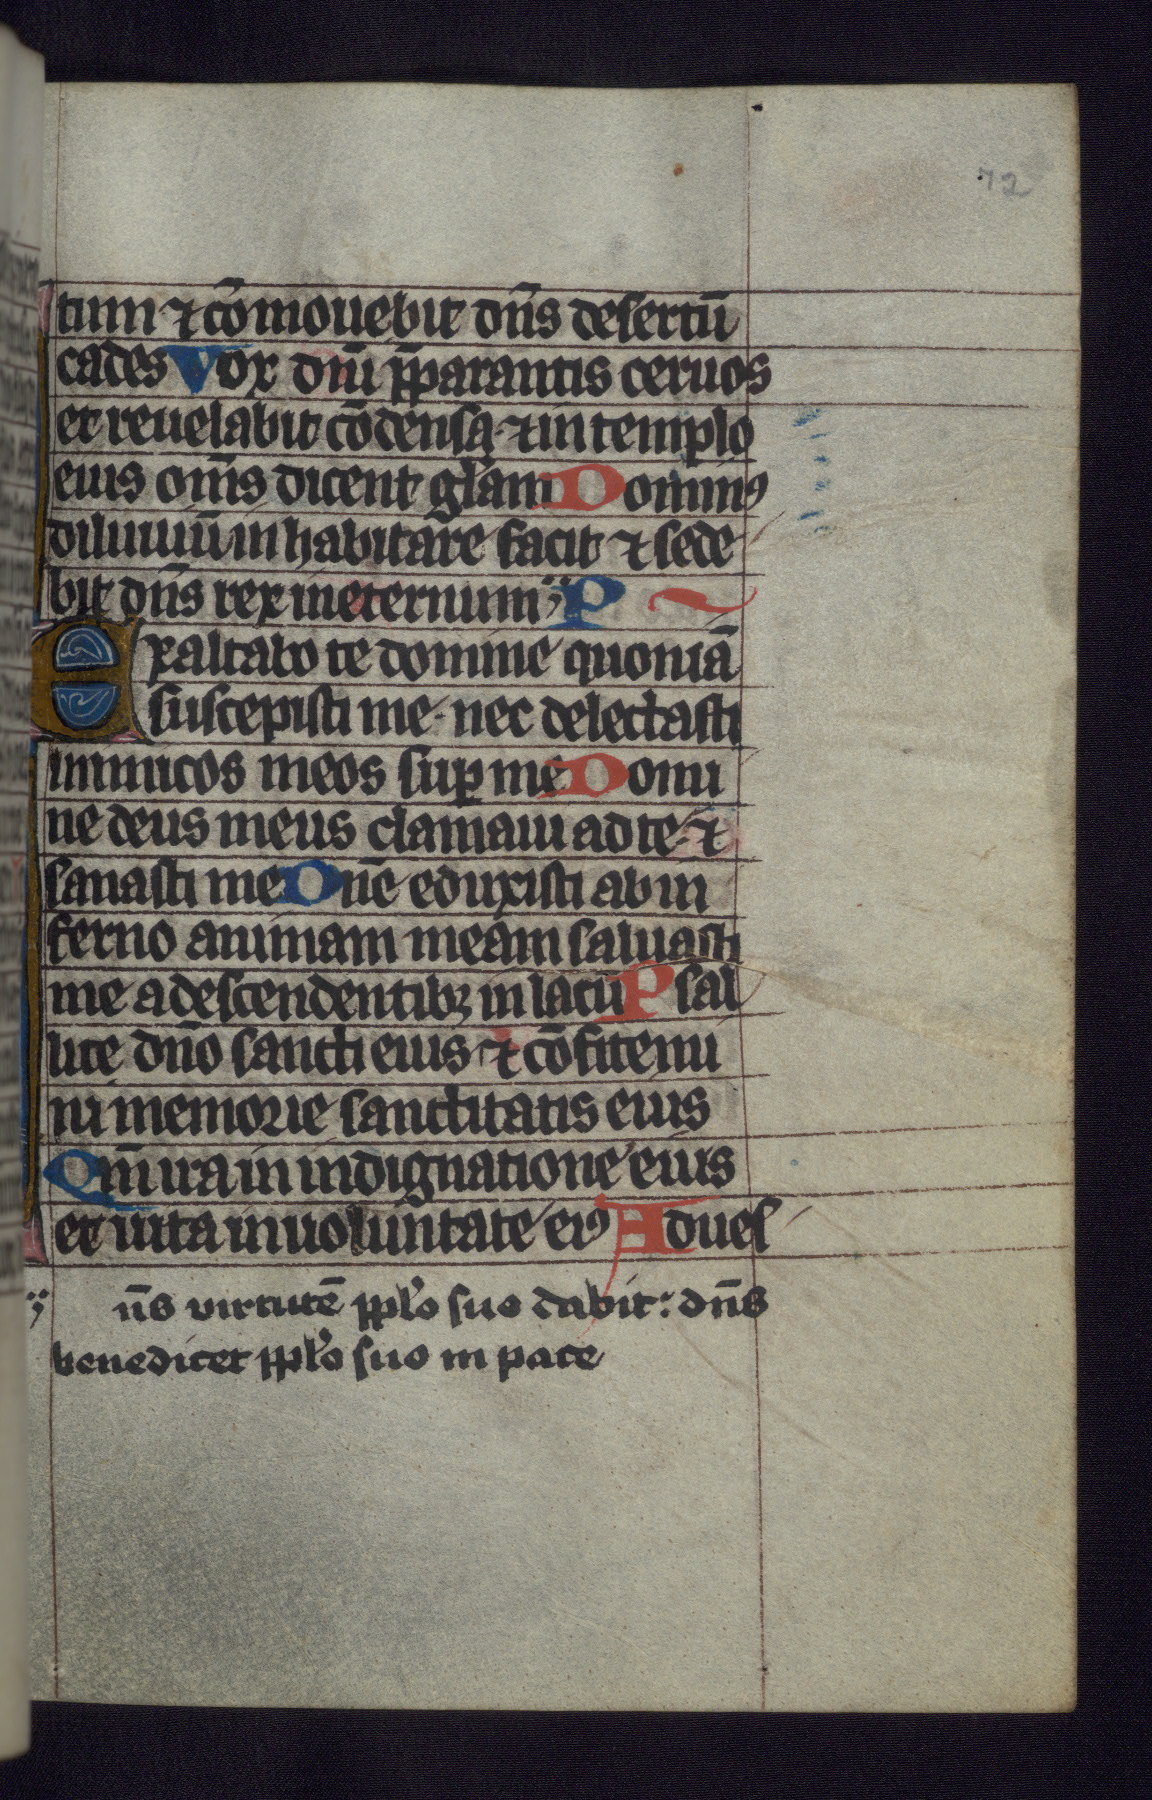 72
tum ⁊ cōmouebit dn̄s desertū
cades Vox dn̄i p̄parantis ceruos
et reuelabit cōdensa ⁊ in templo
eius om̄s dicent gl̄am Dominꝰ
diluuiū inhabitare facit ⁊ sede
bit dn̄s rex in eternum P
Exaltabo te domine quoniā
suscepisti me nec delectasti
inimicos meos suꝑ me Domi
ne deus meus clamaui ad te ⁊
sanasti me Dn̄e eduxisti ab in
ferno animam meam saluasti
me a descendentibꝫ in lacū Psal
lite dn̄o sancti eius ⁊ cōfitemi
ni memorie sanctitatis eius
Qm̄ ira in indignatione eius
et uita in uoluntate eiꝰ Ad uesꝭ
n̄s virtutē ppl̄o suo dabit: dn̄s
benedicet ppl̄o suo in pace